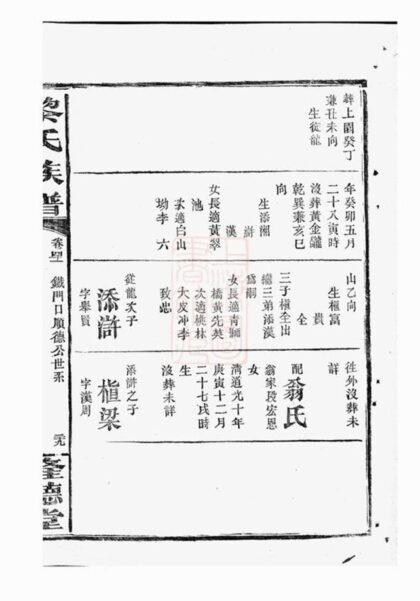 葬上園癸丁
兼丑未向
生從龍
年癸卯五月
二十八寅時
沒葬黃金隴
乾巽兼亥巳
向
生添湘
漢
女長適黃翠
池
次適白山
坳李六
山乙向
生楦富
貴
全
三子楦全出
繼三弟添漢
爲嗣
女長適青獅
橋黃先英
次適桃林
大皮冲李
致忠
從龍次子
添滸
字舉賢
往外沒葬未
詳
配翁氏
翁家段宏恩
女
清道光十年
庚寅十二月
二十七戌時
生
沒葬未詳
添滸之子
楦梁
字漢周
黎氏族譜
鐵門口順德公世系
德堂